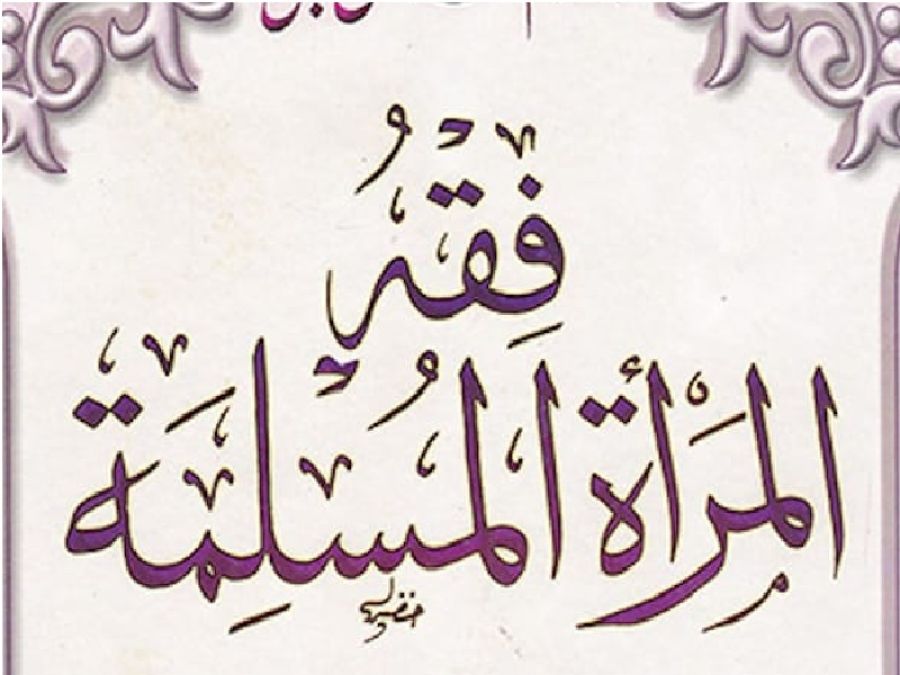 فِقْهُ
المَرْأة المُسلِمَة